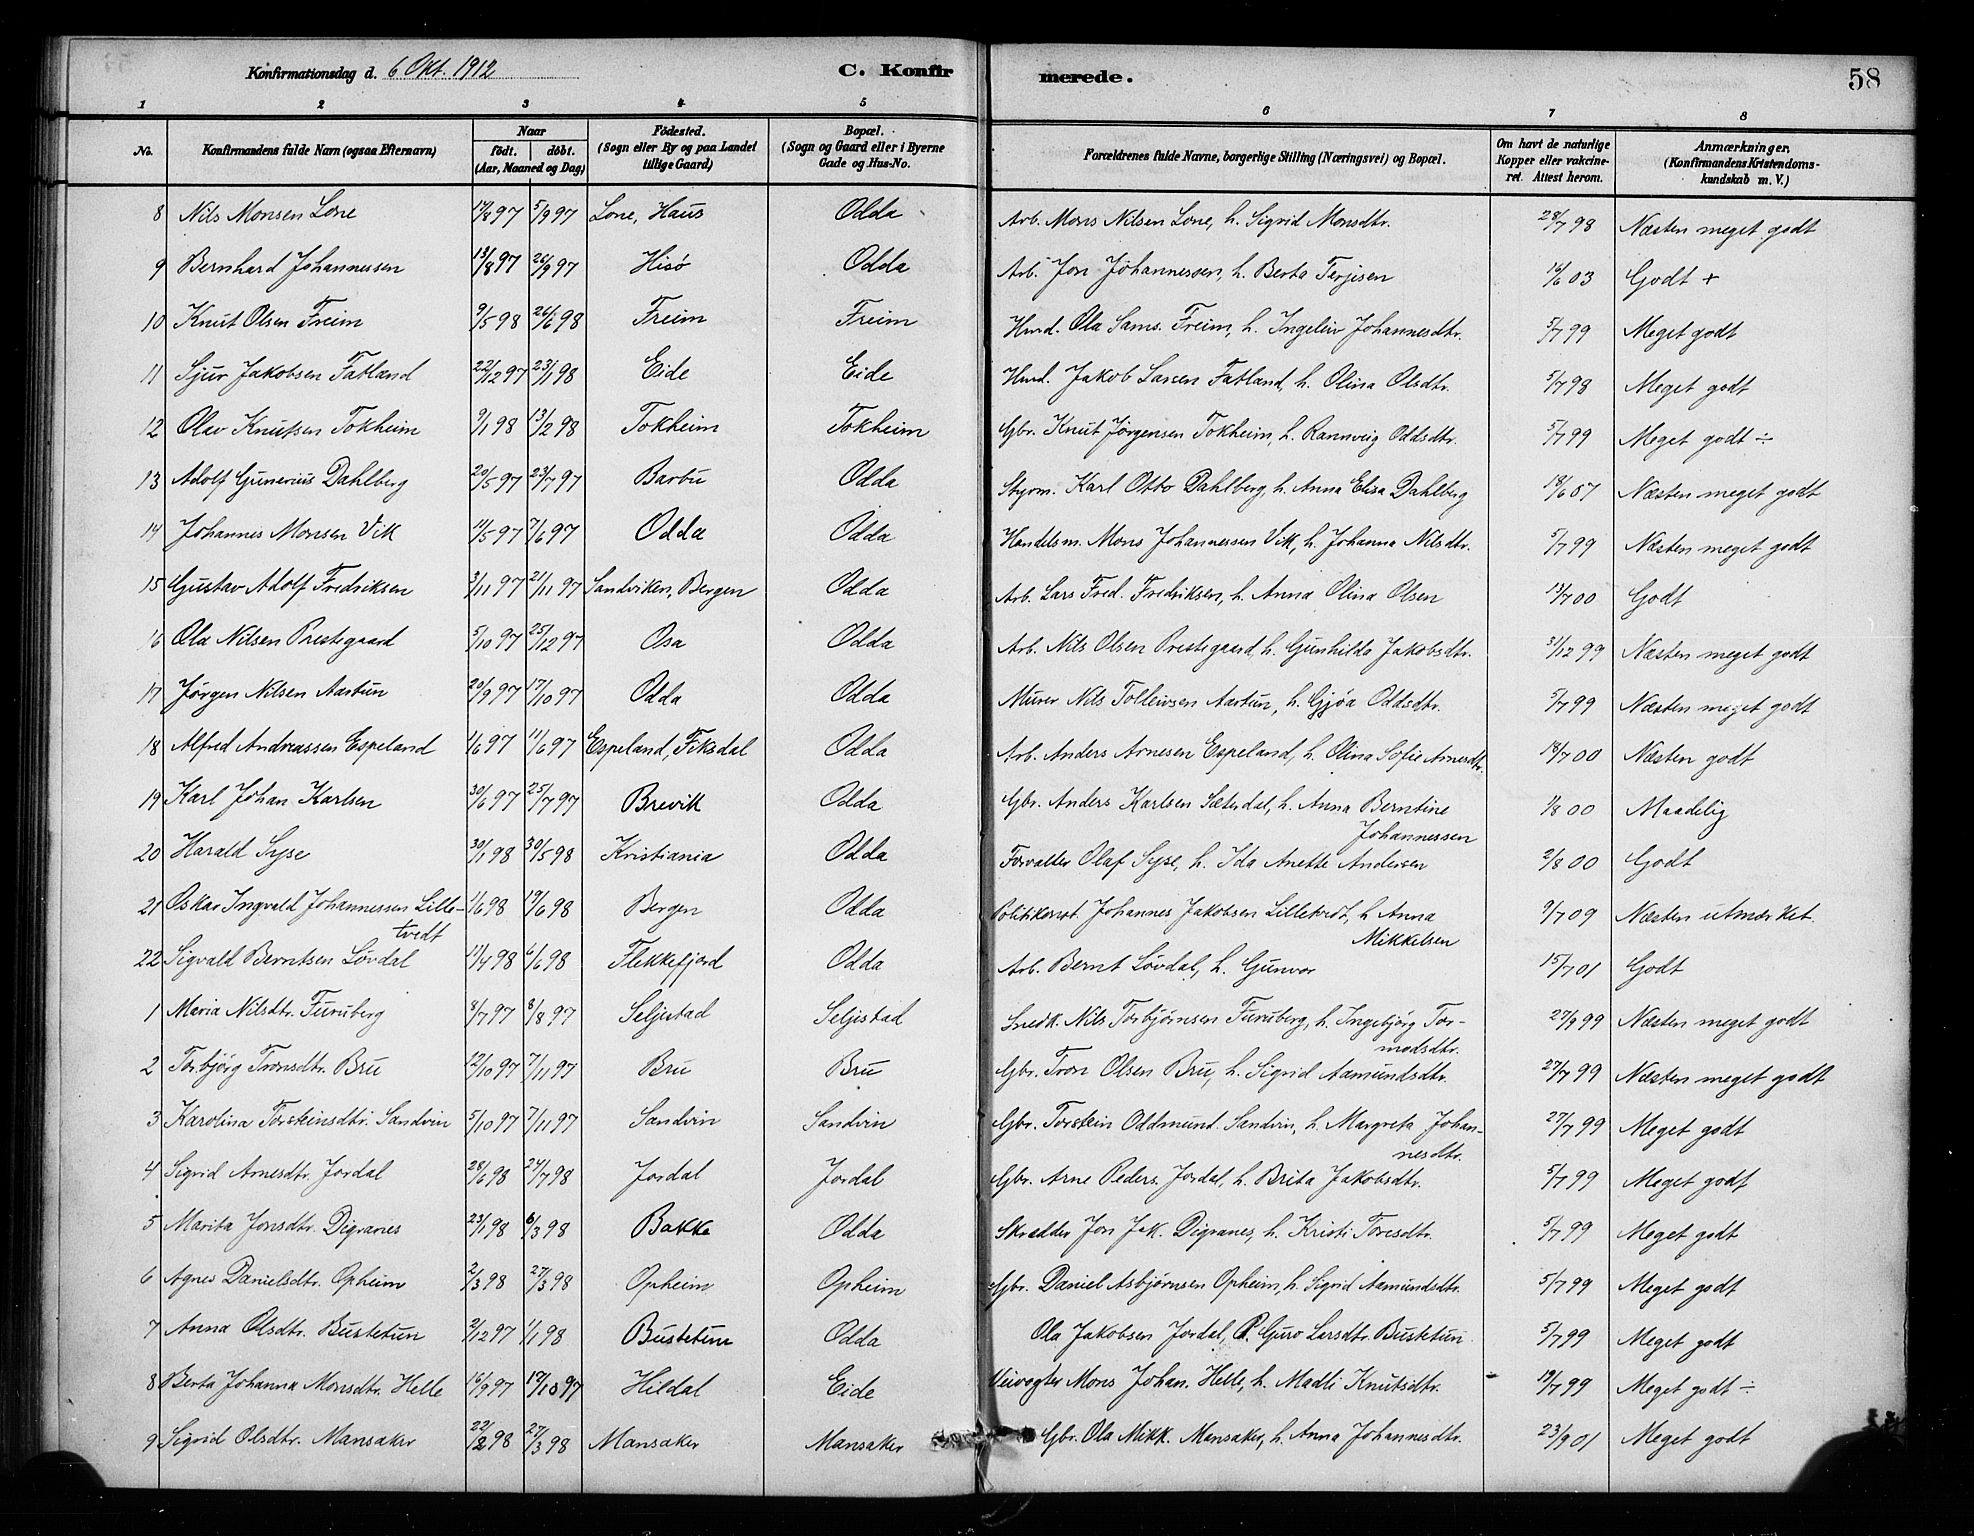 Konfirmationsdag d. 6 Okt. 1912
C. Konfirmerede.
58
1 2 3 4 5 6 7 8
No. Konfirmandens fulde Navn (ogsaa Efternavn) Naar födt. döbt. (Aar, Maaned og Dag) Födested. (Sogn eller By og paa Landet tillige Gaard) Bopæl. (Sogn og Gaard eller i Byerne Gade og Hus-No. Forældrenes fulde Navne, borgerlige Stilling (Næringsvei) og Bopæl. Om havt de naturlige Kopper eller vakcineret. Attest herom. Anmærkninger. (Konfirmandens Kristendomskundskab m. V.)
8 Nils Monsen Lone 5/9 97 Lone, Haus Odda Arb. Mons Nilsen Lone, h. Sigrid Monsdtr. 28/7 98 Næsten meget godt
9 Bernhard Johannessen 13/8 97 26/9 97 Hisö Odda Arb. Jon Johannessen, h. Berta Terjisen 16/6 03 Godt +
10 Knut Olsen Freim 9/5 98 26/6 98 Freim Freim Hmd. Ola Sams. Freim, h. Ingeleiv Johannesdtr. 5/7 99 Meget godt
11 Sjur Jakobsen Fatland 22/12 97 23/1 98 Eide Eide Hmd. Jakob Larsen Fatland, h. Olina Olsdtr. 5/7 98 Meget godt
12 Olav Knutsen Tokheim 9/1 98 13/2 98 Tokheim Tokheim Gbr. Knut Jørgensen Tokheim, h. Rannveig Oddsdtr. 5/7 99 Meget godt ÷
13 Adolf Gunerius Dahlberg 20/5 97 23/7 97 Barbu Odda Styrm. Karl Otto Dahlberg, h. Anna Elisa Dahlberg 18/6 07 Næsten meget godt
14 Johannes Monsen Vik 11/5 97 7/6 97 Odda Odda Handelsm. Mons Johannessen Vik, h. Johanna Nilsdtr. 5/7 99 Næsten meget godt
15 Gustav Adolf Fredriksen 3/11 97 21/11 97 Sandviken, Bergen Odda Arb. Lars Fred. Fredriksen, h. Anna Olina Olsen 13/7 00 Godt
16 Ola Nilsen Prestegaard 5/10 97 25/12 97 Osa Odda Arb. Nils Olsen Prestegaard, h. Gunhilda Jakobsdtr. 31/12 99 Næsten meget godt
17 Jørgen Nilsen Aartun 20/9 97 17/10 97 Odda Odda Murer Nils Tolleivsen Aartun, h. Gjøa Oddsdtr. 5/7 99 Næsten meget godt
18 Alfred Andreassen Espeland 1/6 97 11/6 97 Espeland, Fiksdal Odda Arb. Anders Arnesen Espeland, h. Olina Sofie Arnesdtr. 18/7 00 Næsten godt
19 Karl Johan Karlsen 30/6 97 25/7 97 Brevik Odda Gbr. Anders Karlsen Sæterdal, h. Anna Berntine
Johannessen 1/8 00 Maadelig
20 Harald Syse 30/1 98 30/5 98 Kristiania Odda Forvalter Olaf Syse, h. Ida Anette Andersen 2/8 00 Godt
21 Oskar Ingvald Johannessen Lille- 1/6 98 19/6 98 Bergen Odda Politikonst. Johannes Jakobsen Lilletvedt, h. Anna 9/7 09 Næsten utmærket.
tvedt Mikkelsen
22 Sigvald Berntsen Løvdal 11/4 98 6/6 98 Flekkefjord Odda Arb. Bernt Løvdal, h. Gunvor 15/7 01 Godt
1 Maria Nilsdtr. Furuberg 8/7 97 8/8 97 Seljestad Seljestad Snedk. Nils Torbjørnsen Furuberg, h. Ingebjörg Tor-
modsdtr. 27/9 99 Næsten meget godt
2 Torbjörg Tronsdtr. Bru 12/10 97 7/11 97 Bru Bru Gbr. Tron Olsen Bru, h. Sigrid Aamundsdtr. 27/7 99 Næsten meget godt
3 Karolina Torsteinsdtr. Sandvin 5/10 97 7/11 97 Sandvin Sandvin Gbr. Torstein Oddmund. Sandvin, h. Margreta Johan-
nesdtr. 27/7 99 Meget godt
4 Sigrid Arnesdtr. Jordal 28/6 98 24/7 98 Jordal Jordal Gbr. Arne Peders. Jordal, h. Brita Jakobsdtr. 5/7 99 Meget godt
5 Marita Jonsdtr. Digranes 23/1 98 6/3 98 Bakke Odda Skrædder Jon Jak. Digranes, h. Kristi Toresdtr. 5/7 99 Meget godt
6 Agnes Danielsdtr. Opheim 2/3 98 27/3 98 Opheim Opheim Gbr. Daniel Asbjørnsen Opheim, h. Sigrid Aamundsdtr. 5/7 99 Meget godt
7 Anna Olsdtr. Bustetun 2/12 97 1/1 98 Bustetun Odda Ola Jakobsen Jordal, P. Guro Larsdtr. Bustetun 5/7 99 Meget godt
8 Berta Johanna Monsdtr. Helle 16/9 97 17/10 97 Hildal Eide Veivogter Mons Johan. Helle, h. Madli Knutsdtr. 19/7 99 Meget godt ÷
9 Sigrid Olsdtr. Mansaker 22/2 98 27/3 98 Mansaker Mansaker Gbr. Ola Mikk. Mansaker, h. Anna Johannesdtr. 23/9 01 Meget godt